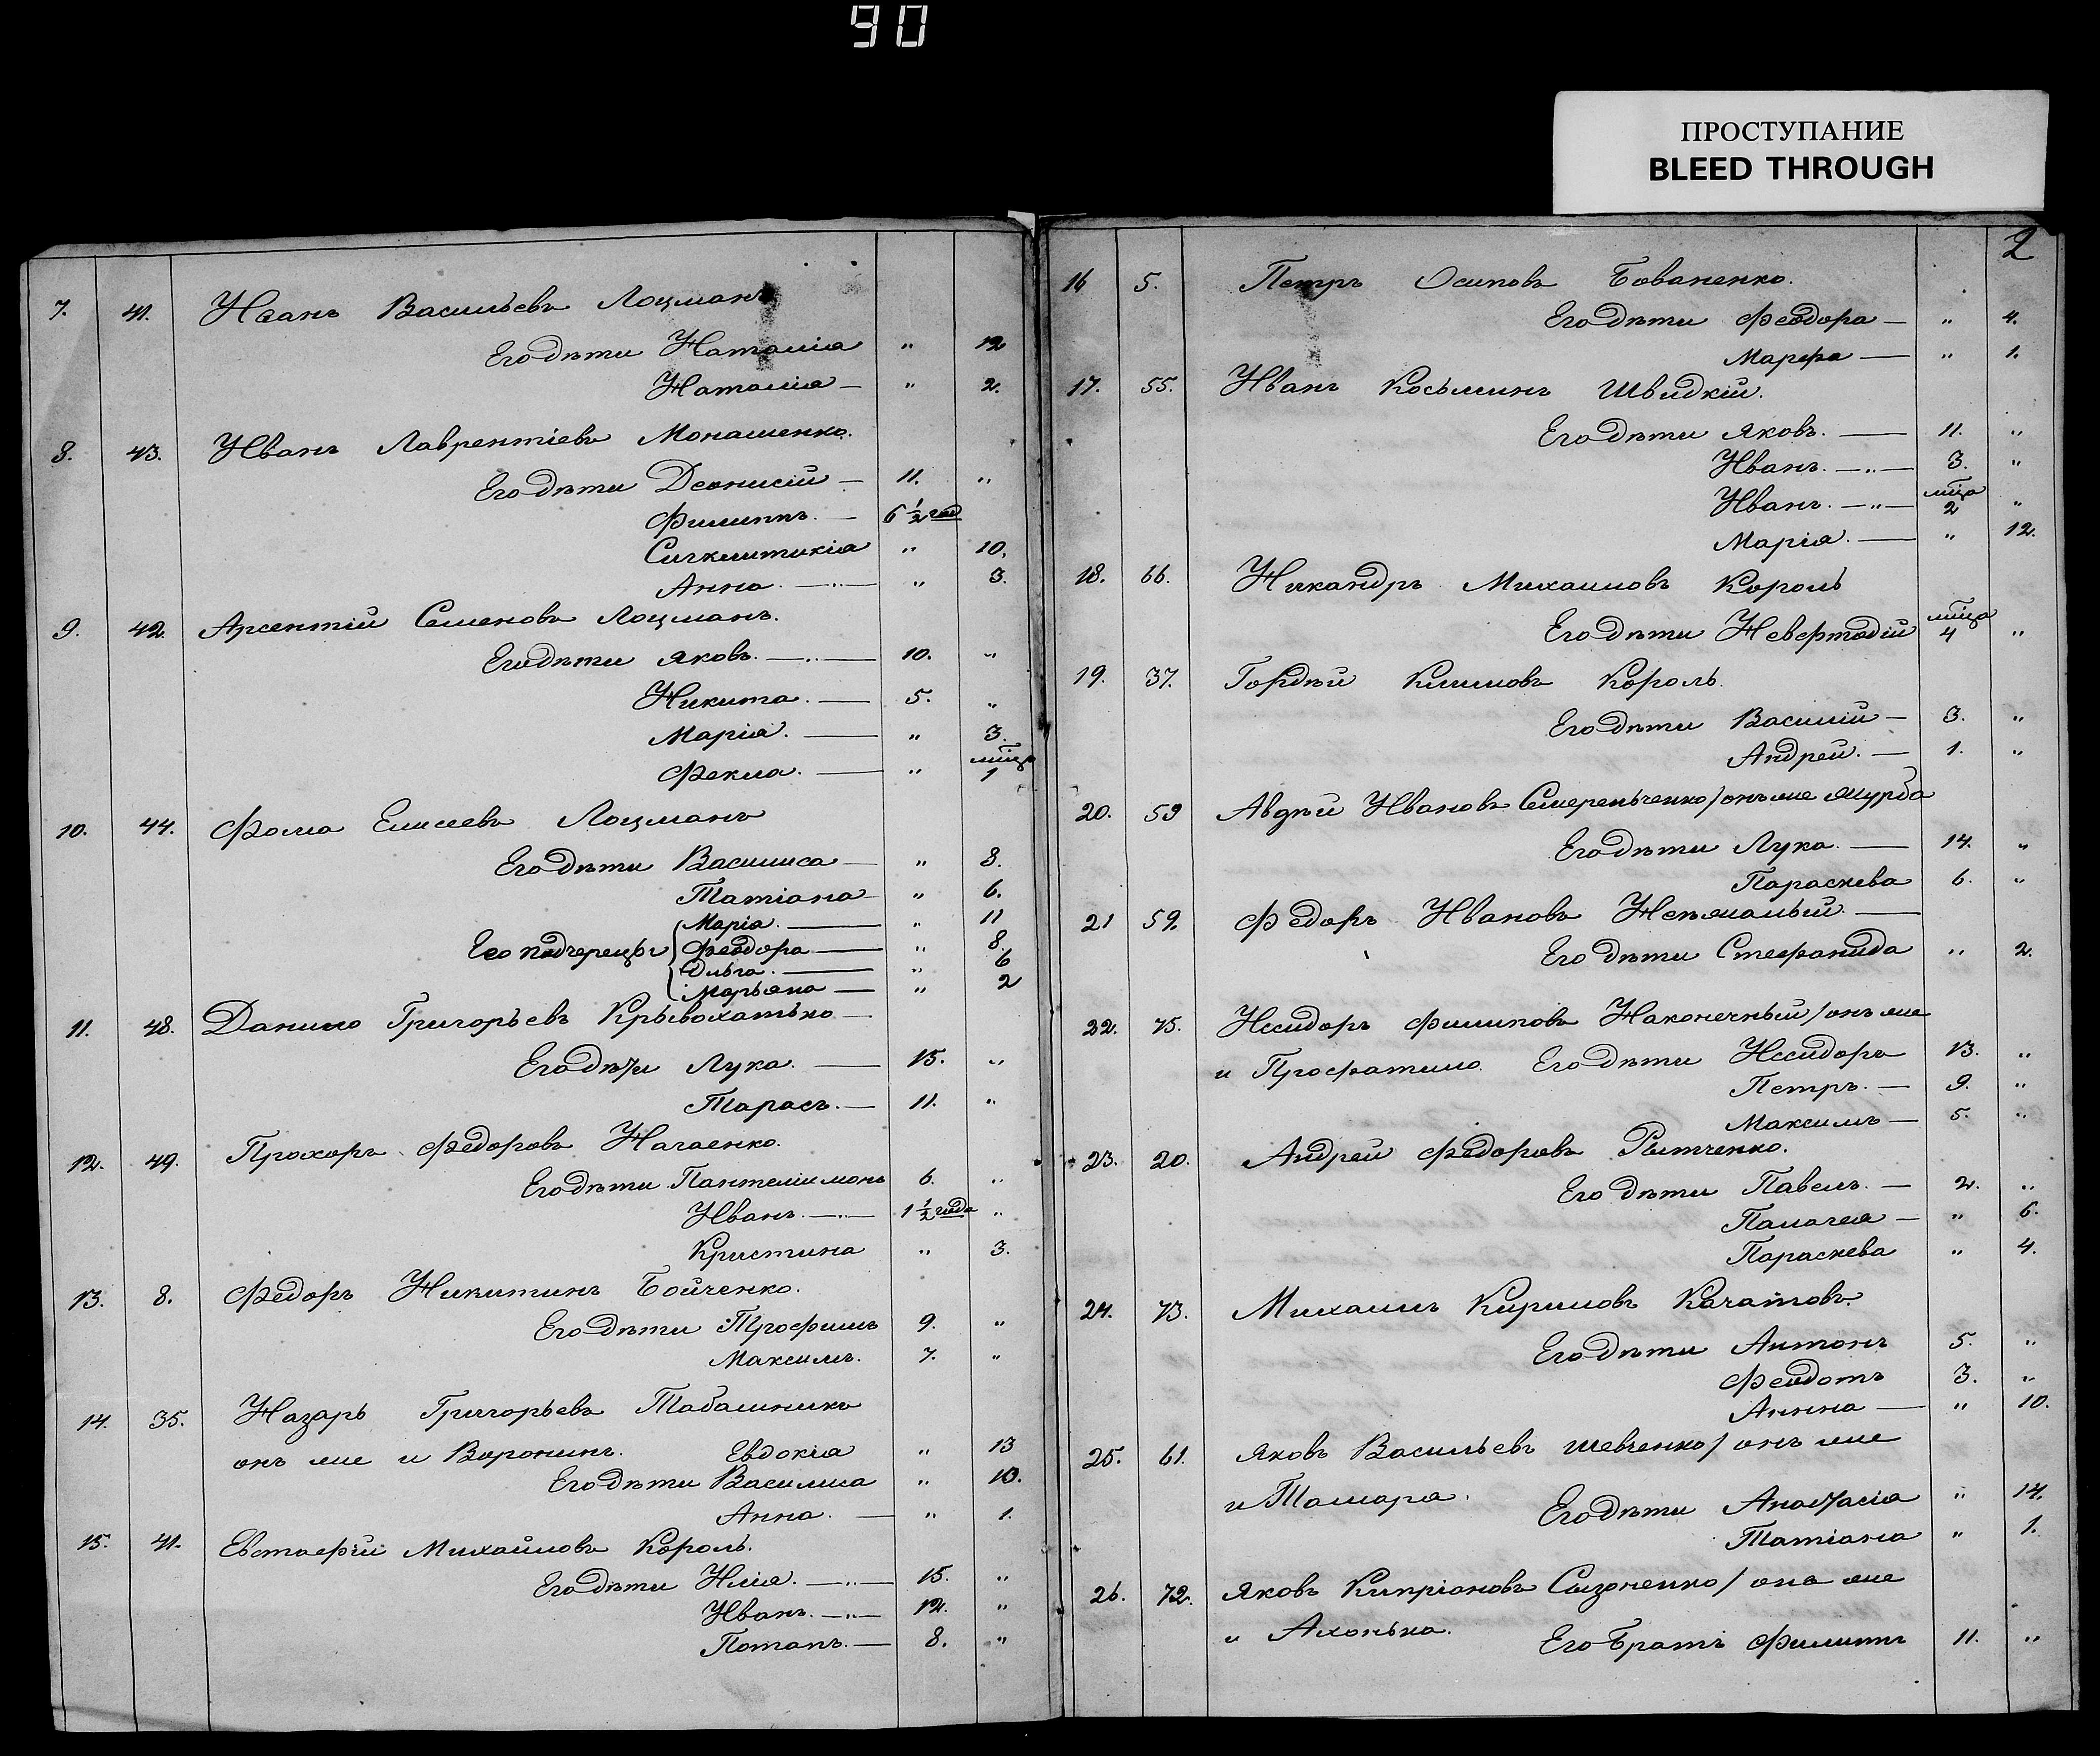 90
ПРОСТУПАНИЕ
BLEED THROUGH
7. 41. Иванъ Васильевъ Лоцманъ
Его дѣти Наталія " 12
Наталія — " 2.
8. 43. Иванъ Лаврентіевъ Монашенко.
Его дѣти Деонисій — 11. "
Филиппъ. — 6 ½ год
Сигклитикія " 10.
Анна. —"— " 3.
9. 42. Арсентій Семеновъ Лоцманъ.
Его дѣти Яковъ. —"— 10. "
Никита. — 5. "
Марія. — " 3.
Фекла. — " мѣца 1
10. 44. Фома Елисеевъ Лоцманъ
Его дѣти Василиса — " 8.
Татіана — " 6.
Марія. — " 11
Его падчерецы Феодора — " 8.
Ольга. — " 6
Марьяна — " 2
11. 48. Данило Григорьевъ Крывохатько —
Его дѣти Лука. — 15. "
Тарасъ. — 11. "
12. 49. Прохоръ Федоровъ Нагаенко.
Его дѣти Пантелимонъ 6. "
Иванъ. —"— 1 ½ года "
Кристина " 3.
13. 8. Федоръ Никитинъ Бойченко.
Его дѣти Трофимъ 9. "
Максимъ. 7. "
14. 35. Назаръ Григорьевъ Табашникъ
онъ же и Воронинъ. Евдокія " 13
Его дѣти Василиса " 10.
Анна. — " 1.
15. 41. Евстафій Михайловъ Король.
Его дѣти Илія. —"— 15. "
Иванъ. —"— 12. "
Потапъ. — 8. "
2
16 5. Петръ Осиповъ Бованенко.
Его дѣти Феодора — " 4.
Марфа — " 1.
17. 55. Иванъ Косьминъ Швидкій.
Его дѣти Яковъ. — 11. "
Иванъ. —"— 3. "
Иванъ. —"— мѣца 2 "
Марія. — " 12.
18. 66. Никандръ Михаиловъ Король
Его дѣти мѣца 4 "
19. 37. Гордѣй Климовъ Король.
Его дѣти Василій — 3. "
Андрей. — 1. "
20. 59 Авдѣй Ивановъ / онъ же Журба
Его дѣти Лука. — 14. "
Параскева 6. "
21 59. Федоръ Ивановъ —
Его дѣти Стефанида " 2.
22. 75. Исидоръ Филиповъ Наконечный / онъ же
и Его дѣти Исидоръ 13. "
Петръ. — 9. "
Максимъ — 5. "
23. 20. Андрей Федоровъ Рытченко.
Его дѣти Павелъ. — 2. "
Палагея — " 6.
Параскева " 4.
24. 73. Михаилъ Кириловъ
Его дѣти Антонъ 5. "
Феодотъ 3. "
Аннна — " 10.
25. 61. Яковъ Васильевъ Шевченко / онъ же
и Его дѣти Анастасія " 14.
Татіана " 1.
26. 72. Яковъ Кипріановъ Сизоненко / онъ же
и Ахонька. Его братъ Филиппъ 11. "